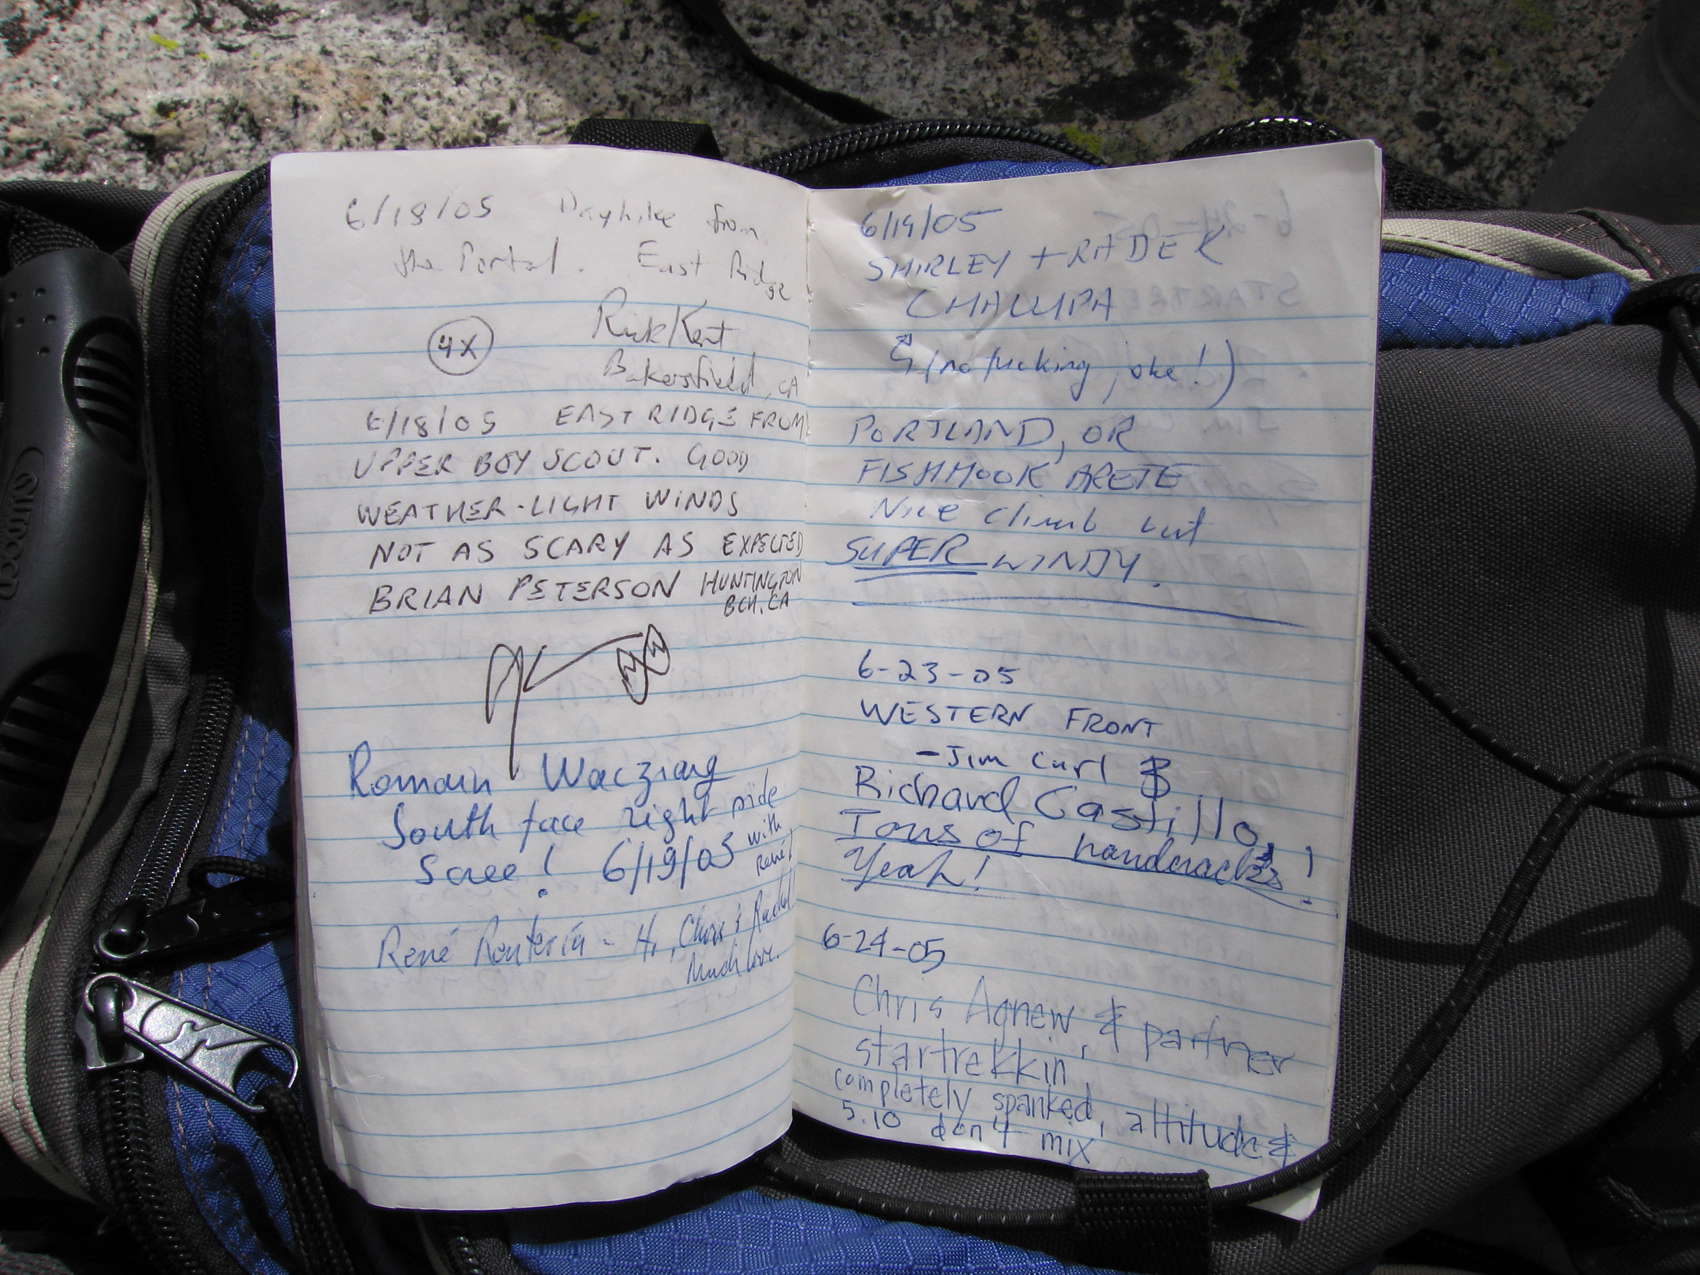 6/18/05 Dayhike from
the Portal. East Ridge
4X
Rick Kent
Bakersfield, CA
6/18/05 EAST RIDGE FROM
UPPER BOY SCOUT. GOOD
WEATHER - LIGHT WINDS
NOT AS SCARY AS EXPECTED
BRIAN PETERSON HUNTINGTON
BCH, CA
Romain Wacziarg
South face right side
Scree! 6/19/05 with
René!
René Renteria - Hi, Chris & Rachel
Much love.
6/19/05
SHIRLEY + RADEK
CHALUPA
(no fucking joke!)
PORTLAND, OR
FISHHOOK ARETE
Nice climb but
SUPER WINDY.
6-23-05
WESTERN FRONT
- Jim Curl
Richard Castillo,
Tons of handcracks!
Yeah!
6-24-05
Chris Agnew & partner
startrekkin,
completely spanked, altitude &
5.10 don't mix